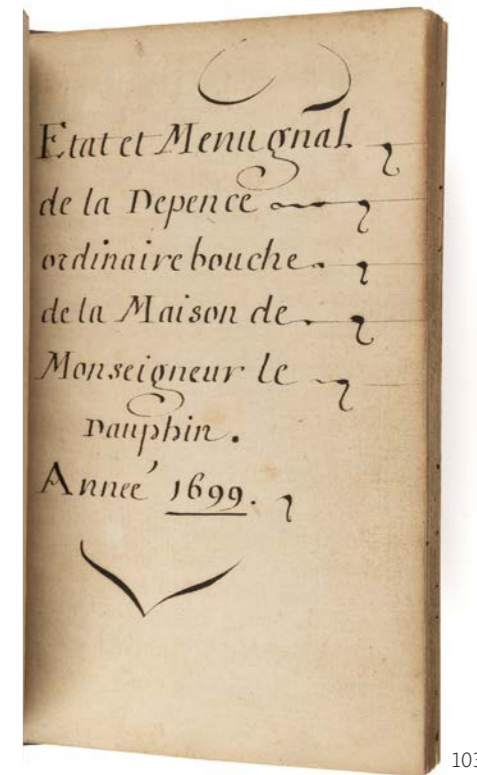 Etat et Menu gnãl
de la Depence
ordinaire bouche.
de la Maison de.
Monseigneur le
Dauphin.
Annee' 1699.
103